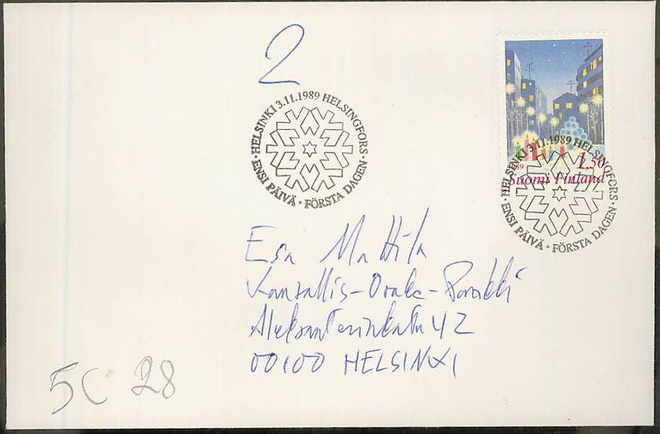 2
HELSINKI 3.11.1989 HELSINGFORS
ENSI PÄIVÄ · FÖRSTA DAGEN
1.50
Suomi Finland
HELSINKI 3.11.1989 HELSINGFORS
ENSI PÄIVÄ · FÖRSTA DAGEN
Esa Mattila
Kansallis-Osake-Pankki
Aleksanterinkatu 42
00100 HELSINKI
5C 28